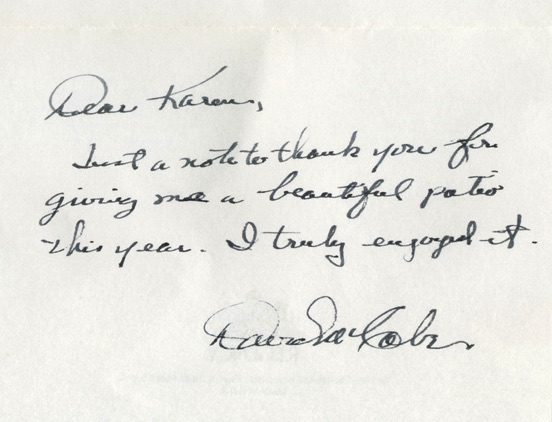 Dear Karen,
Just a note to thank you for
giving me a beautiful patio
this year. I truly enjoyed it.